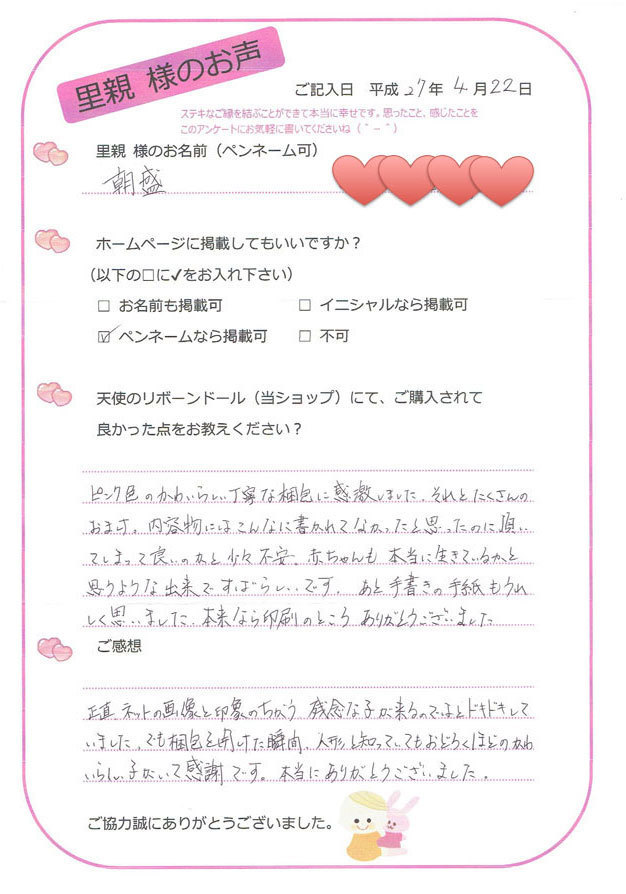 里親 様のお声
ご記入日 平成 27年 4月22日
ステキなご縁を結ぶことができて本当に幸せです。思ったこと、感じたことを
このアンケートにお気軽に書いてくださいね（＾－＾）
里親 様のお名前（ペンネーム可）
朝盛
ホームページに掲載してもいいですか？
（以下の□に✓をお入れ下さい）
□ お名前も掲載可 □ イニシャルなら掲載可
☑ ペンネームなら掲載可 □ 不可
天使のリボーンドール（当ショップ）にて、ご購入されて
良かった点をお教えください？
ピンク色のかわいらしい丁寧な梱包に感激しました。それとたくさんの
おまけ。内容物にはこんなに書かれてなかったと思ったのに頂い
てしまって良いのかと少々不安。赤ちゃんも本当に生きているかと
思うような出来ですばらしいです。あと手書きの手紙もうれ
しく思いました。本来なら印刷のところありがとうございました
ご感想
正直、ネットの画像と印象のちがう残念な子が来るのではとドキドキして
いました。でも梱包を開けた瞬間、人形と知っていてもおどろくほどのかわ
いらしい子がいて感謝です。本当にありがとうございました。
ご協力誠にありがとうございました。